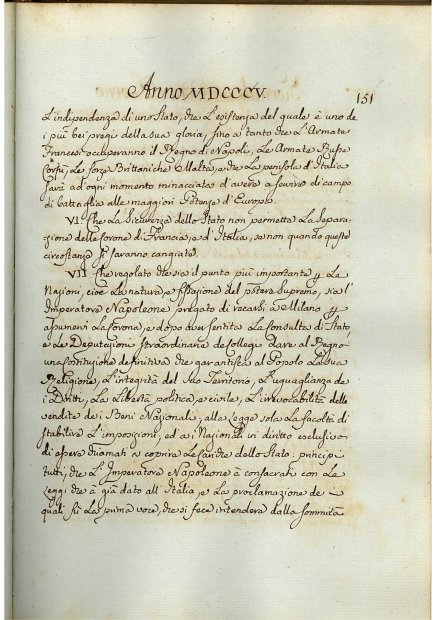 Anno MDCCCV.
151
L'indipendenza di uno Stato, che l'esistenza del quale è uno de
i più bei pregi della sua gloria, sino a tanto che l'Armate
Francesi occuperanno il Regno di Napoli, le Armate Russe
Corfù, le forze Brittaniche Malta, e che la penisola d'Italia
sarà ad'ogni momento minacciata d'avere a servire di campo
di battaglia alle maggiori Potenze d'Europa.
VI Che la sicurezza dello Stato non permette la separa-
zione delle Corone di Francia, e d'Italia, se non quando queste
circostanze si saranno cangiate.
VII Che regolato che sia il punto più importante p le
Nazioni, cioè la natura, e fissazione del potere Supremo, sia l'
Imperatore Napoleone pregato di recarsi a Milano p
assumervi la Corona, e dopo aver sentita la Consulta di Stato,
e le Deputazioni straordinarie de Collegi dare al Regno
una Costituzione definitiva che garantisca al Popolo la sua
Religione, l'integrità del suo Territorio, l'uguaglianza de
i Dritti, la libertà politica, e civile, l'irrevocabilità delle
vendite de i Beni Nazionali, alla legge sola la facoltà di
stabilire l'imposizioni, ed a i Nazionali un diritto esclusivo
di essere chiamati a coprire le cariche dello Stato: principj
tutti, che l'Imperatore Napoleone à consacrati con le
leggi che à già dato all'Italia, e la proclamazione de
quali fù la prima voce, che si fece intendere dalla sommità